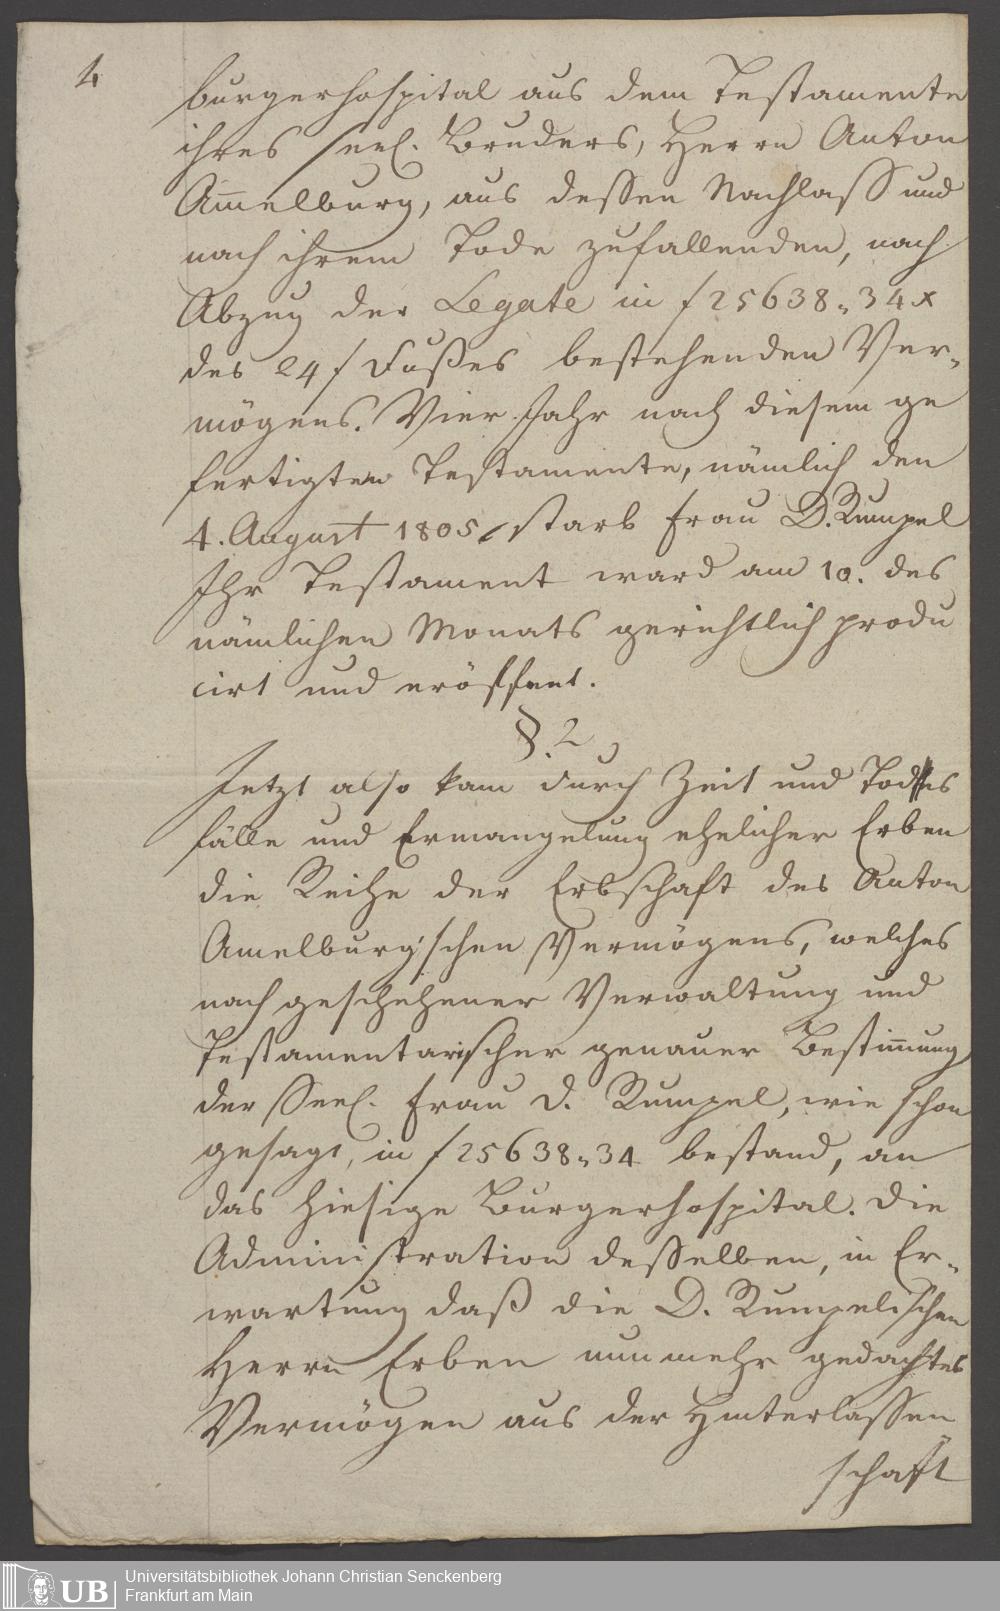 4
burgerhospital aus dem Testamente
ihres seel. Bruders, Herrn Anton
Am̄elburg, aus dessen Nachlass und
nach ihrem Tode zufallenden, nach
Abzug der Legate in f 25638„34 x
des 24 f Fußes bestehenden Ver„
mögens. Vier Jahr nach diesem ge
fertigten Testamente, nämlich den
4. August 1805, starb Frau D. Rumpel
Ihr Testament ward am 10. des
nämlichen Monats gerichtlich produ
cirt und eröffnet.
§. 2
Jetzt also kam durch Zeit und Todtes
fälle und Ermangelung ehelicher Erben
die Reihe der Erbschaft des Anton
Amelburg'schen Vermögens, welches
nach geschehener Verwaltung und
Testamentarischer genauer Bestim̄ung
der Seel. Frau D. Rumpel, wie schon
gesagt, in f 25638„34 bestand, an
das hiesige Burgerhospital. Die
Administration desselben, in Er„
wartung daß die D. Rumpelischen
Herrn Erben nunmehr gedachtes
Vermögen aus der Hinterlassen
schaft
UB
Universitätsbibliothek Johann Christian Senckenberg
Frankfurt am Main